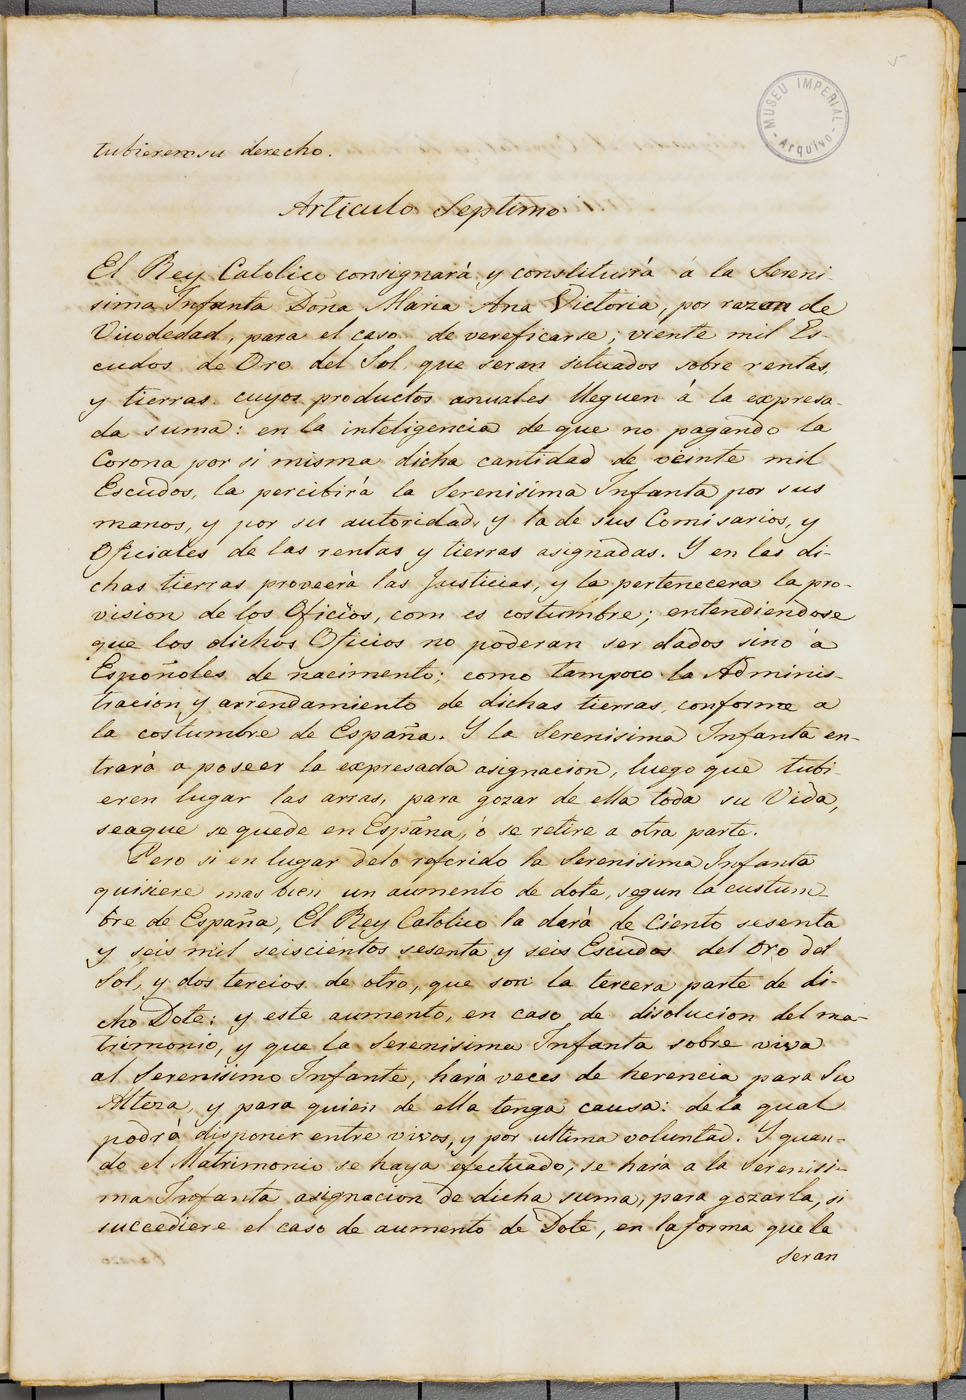 MUSEU IMPERIAL
- Arquivo -
tubierem su derecho.
Articulo Septimo
El Rey Catolico consignará y constituirá á la Sereni
sima Infanta Doña Maria Ana Victoria, por razon de
Viudedad, para el caso de vereficarse; viente mil Es-
cudos de Oro del Sol que seran situados sobre rentas
y tierras cuyos productos anuales lleguen á la expresa-
da suma: en la inteligencia de que no pagando la
Corona por si misma dicha cantidad de veinte mil
Escudos, la percibirá la Serenisima Infanta por sus
manos, y por su autoridad, y la de sus Comisarios, y
Oficiales de las rentas y tierras asignadas. Y en las di-
chas tierras proveerá las Justicias, y la pertenecera la pro-
vision de los Oficios, com es costumbre; entendiendose
que los dichos Oficios no poderan ser dados sino á
Españoles de nacimento; como tampoco la Adminis-
tracion y arrendamiento de dichas tierras, conforme a
la costumbre de España. Y la Serenisima Infanta en-
trará a poseer la expresada asignacion, luego que tubi-
eren lugar las arras, para gozar de ella toda su Vida,
seaque se quede en España, ó se retire a otra parte.
Pero si en lugar delo referido la Serenisima Infanta
quisiere mas bien un aumento de dote, segun la custum-
bre de España, El Rey Catolico la dará de Ciento sesenta
y seis mil seiscientos sesenta y seis Escudos del Oro del
Sol, y dos tercios de otro, que son la tercera parte de di-
cho Dote: y este aumento, en caso de disolucion del ma-
trimonio, y que la Serenisima Infanta sobre viva
al Serenisimo Infante, hará veces de herencia para Su
Alteza, y para quien de ella tenga causa: de la qual
podrá disponer entre vivos, y por ultima voluntad. Y quan-
do el Matrimonio se haya efectuado, se hará a la Serenisi-
ma Infanta asignacion de dicha suma, para gozarla, si
succediere el caso de aumento de Dote, en la forma que la
seran